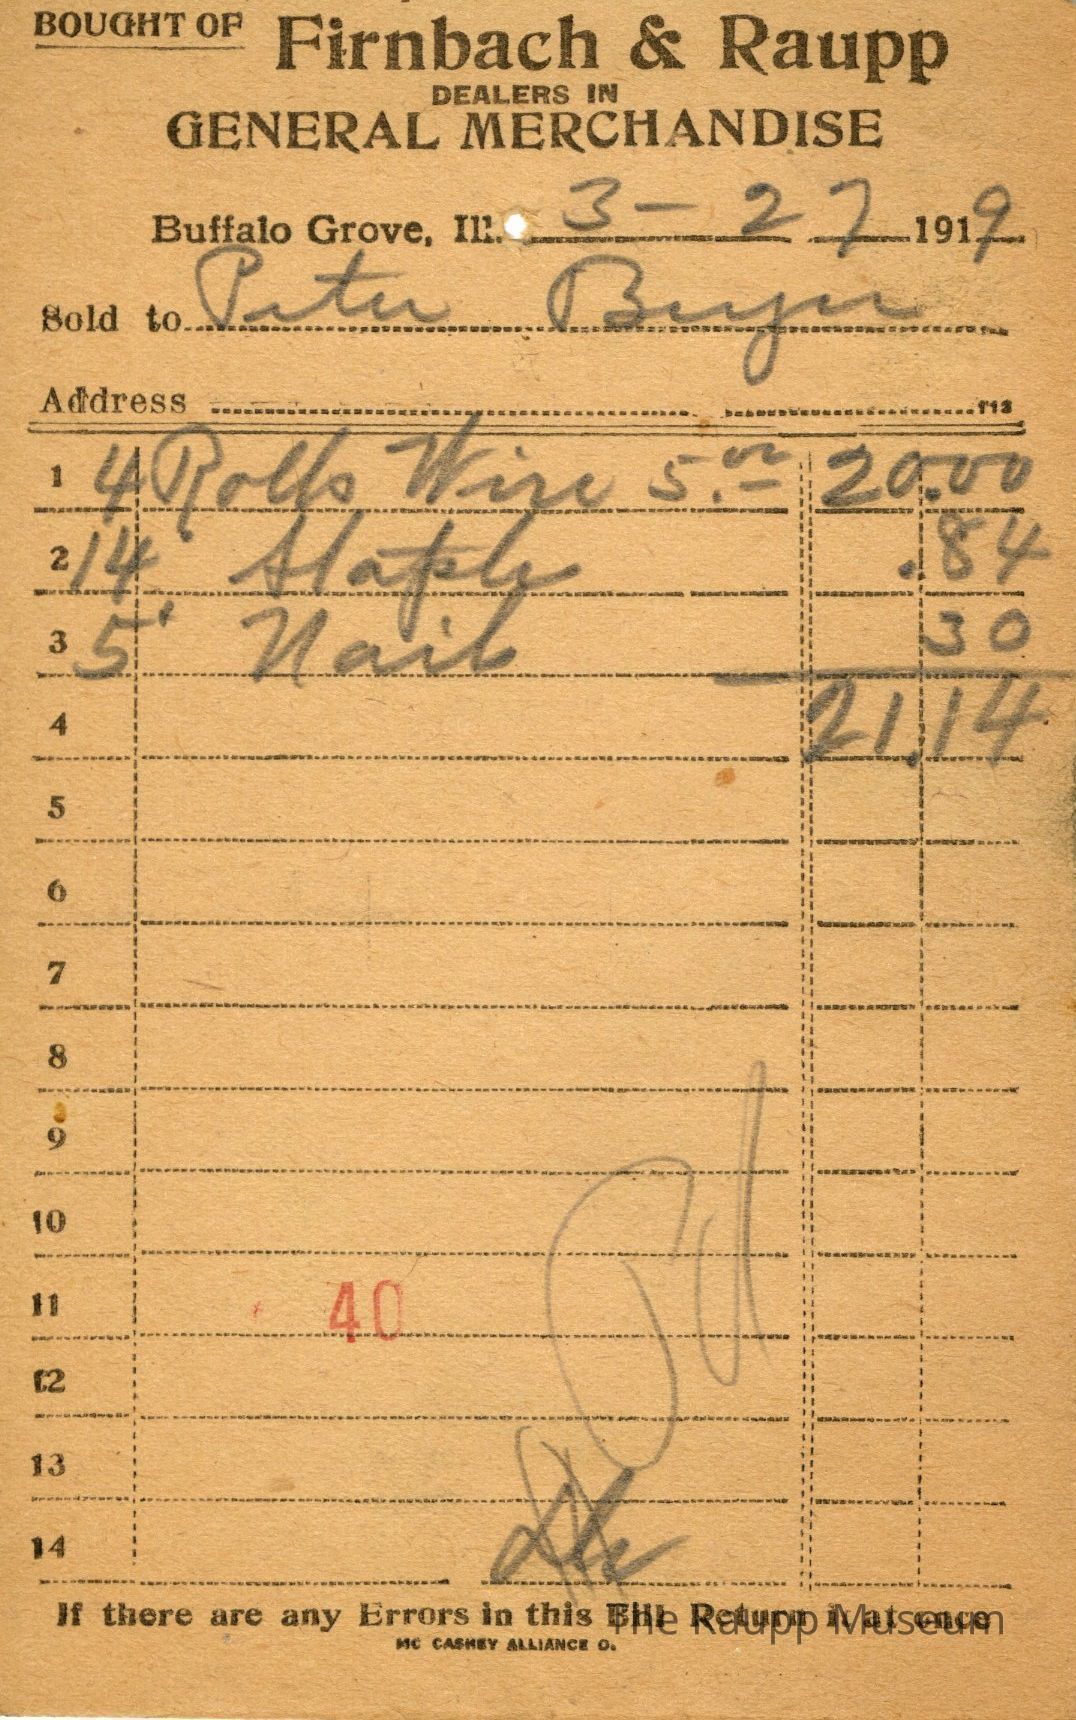 BOUGHT OF Firnbach & Raupp
DEALERS IN
GENERAL MERCHANDISE
Buffalo Grove, Ill. 3-27 1919
Sold to Peter
Address 113
1 4 Rolls Wire 5.00 20.00
2 14 Staples .84
3 5 Nails 30
4 21.14
5
6
7
8
9
10
11 40
12
13
14
Pd
If there are any Errors in this Bill Return it at once
The Raupp Museum
MC CASKEY ALLIANCE O.